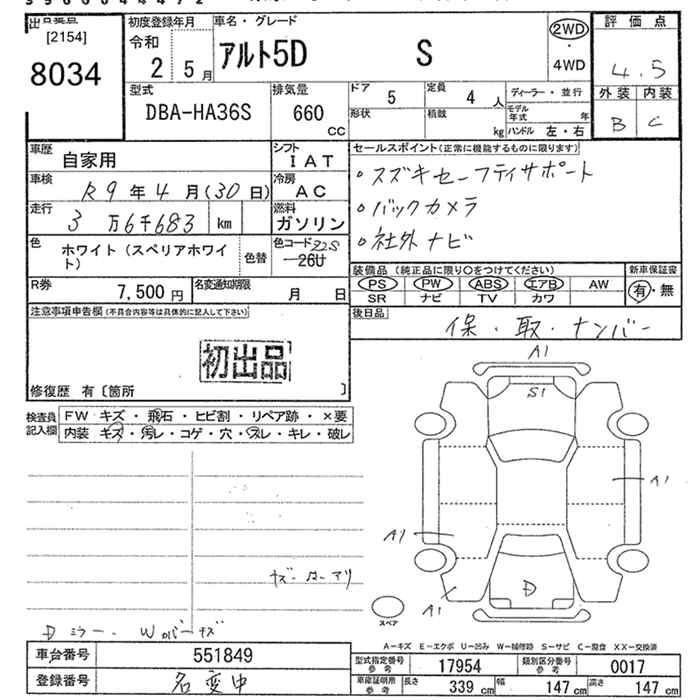 出品番号
[2154]
8034
初度登録年月
令和
2 5月
車名・グレード
アルト5D S
2WD
・
4WD
評価点
4.5
外装 内装
B C
型式
DBA-HA36S
排気量
660
CC
ドア
5
定員
4 人
ディーラー・並行
形状
積載
kg
モデル年式 年
ハンドル 左・右
車歴
自家用
シフト
IAT
セールスポイント(正常に機能するものに限ります)
・スズキセーフティサポート
・バックカメラ
・社外ナビ
車検
R9年4月(30日)
冷房
AC
走行
3万6千683 km
燃料
ガソリン
色
ホワイト(スペリアホワイト)
色替
色コード 22S
26U
装備品(純正品に限り○をつけてください)
PS PW ABS エアB AW
SR ナビ TV カワ
新車保証書
有・無
R券
7,500円
名変通知期限
月 日
後日品
保・取・ナンバー
注意事項申告欄(不具合内容等は具体的に記入して下さい)
初出品
修復歴 有〔箇所 〕
検査員記入欄
FW キズ・飛石・ヒビ割・リペア跡・×要
内装 キズ・汚レ・コゲ・穴・スレ・キレ・破レ
A1
S1
A1
A1
A1
D
スペア
Dミラー・Wカバーキズ
A-キズ E-エクボ U-凹み W-補修跡 S-サビ C-腐食 XX-交換済
車台番号
551849
登録番号
名変中
型式指定番号
参考
17954
類別区分番号
参考
0017
車庫証明用
参考
長さ 339 cm
幅 147 cm
高さ 147 cm